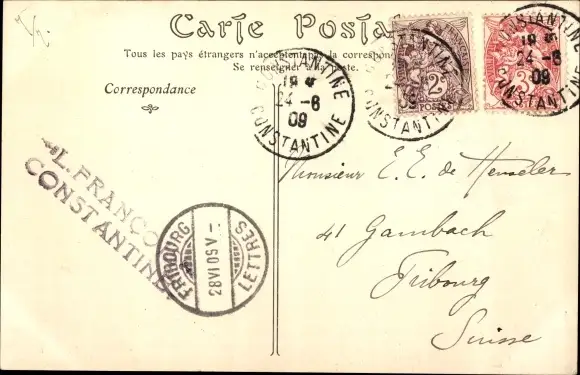 Carte Postale
Tous les pays étrangers n'acceptent pas la correspondance
Se renseigner à la poste.
Correspondance
CONSTANTINE
19
24 - 6
09
CONSTANTINE
2
POSTES
CONSTANTINE
CONSTANTINE
19
24 - 6
09
CONSTANTINE
L. FRANCO
CONSTANTINE
FRIBOURG
28 VI 09 V -
LETTRES
Monsieur E. E. de Henseler
41 Gambach
Fribourg
Suisse